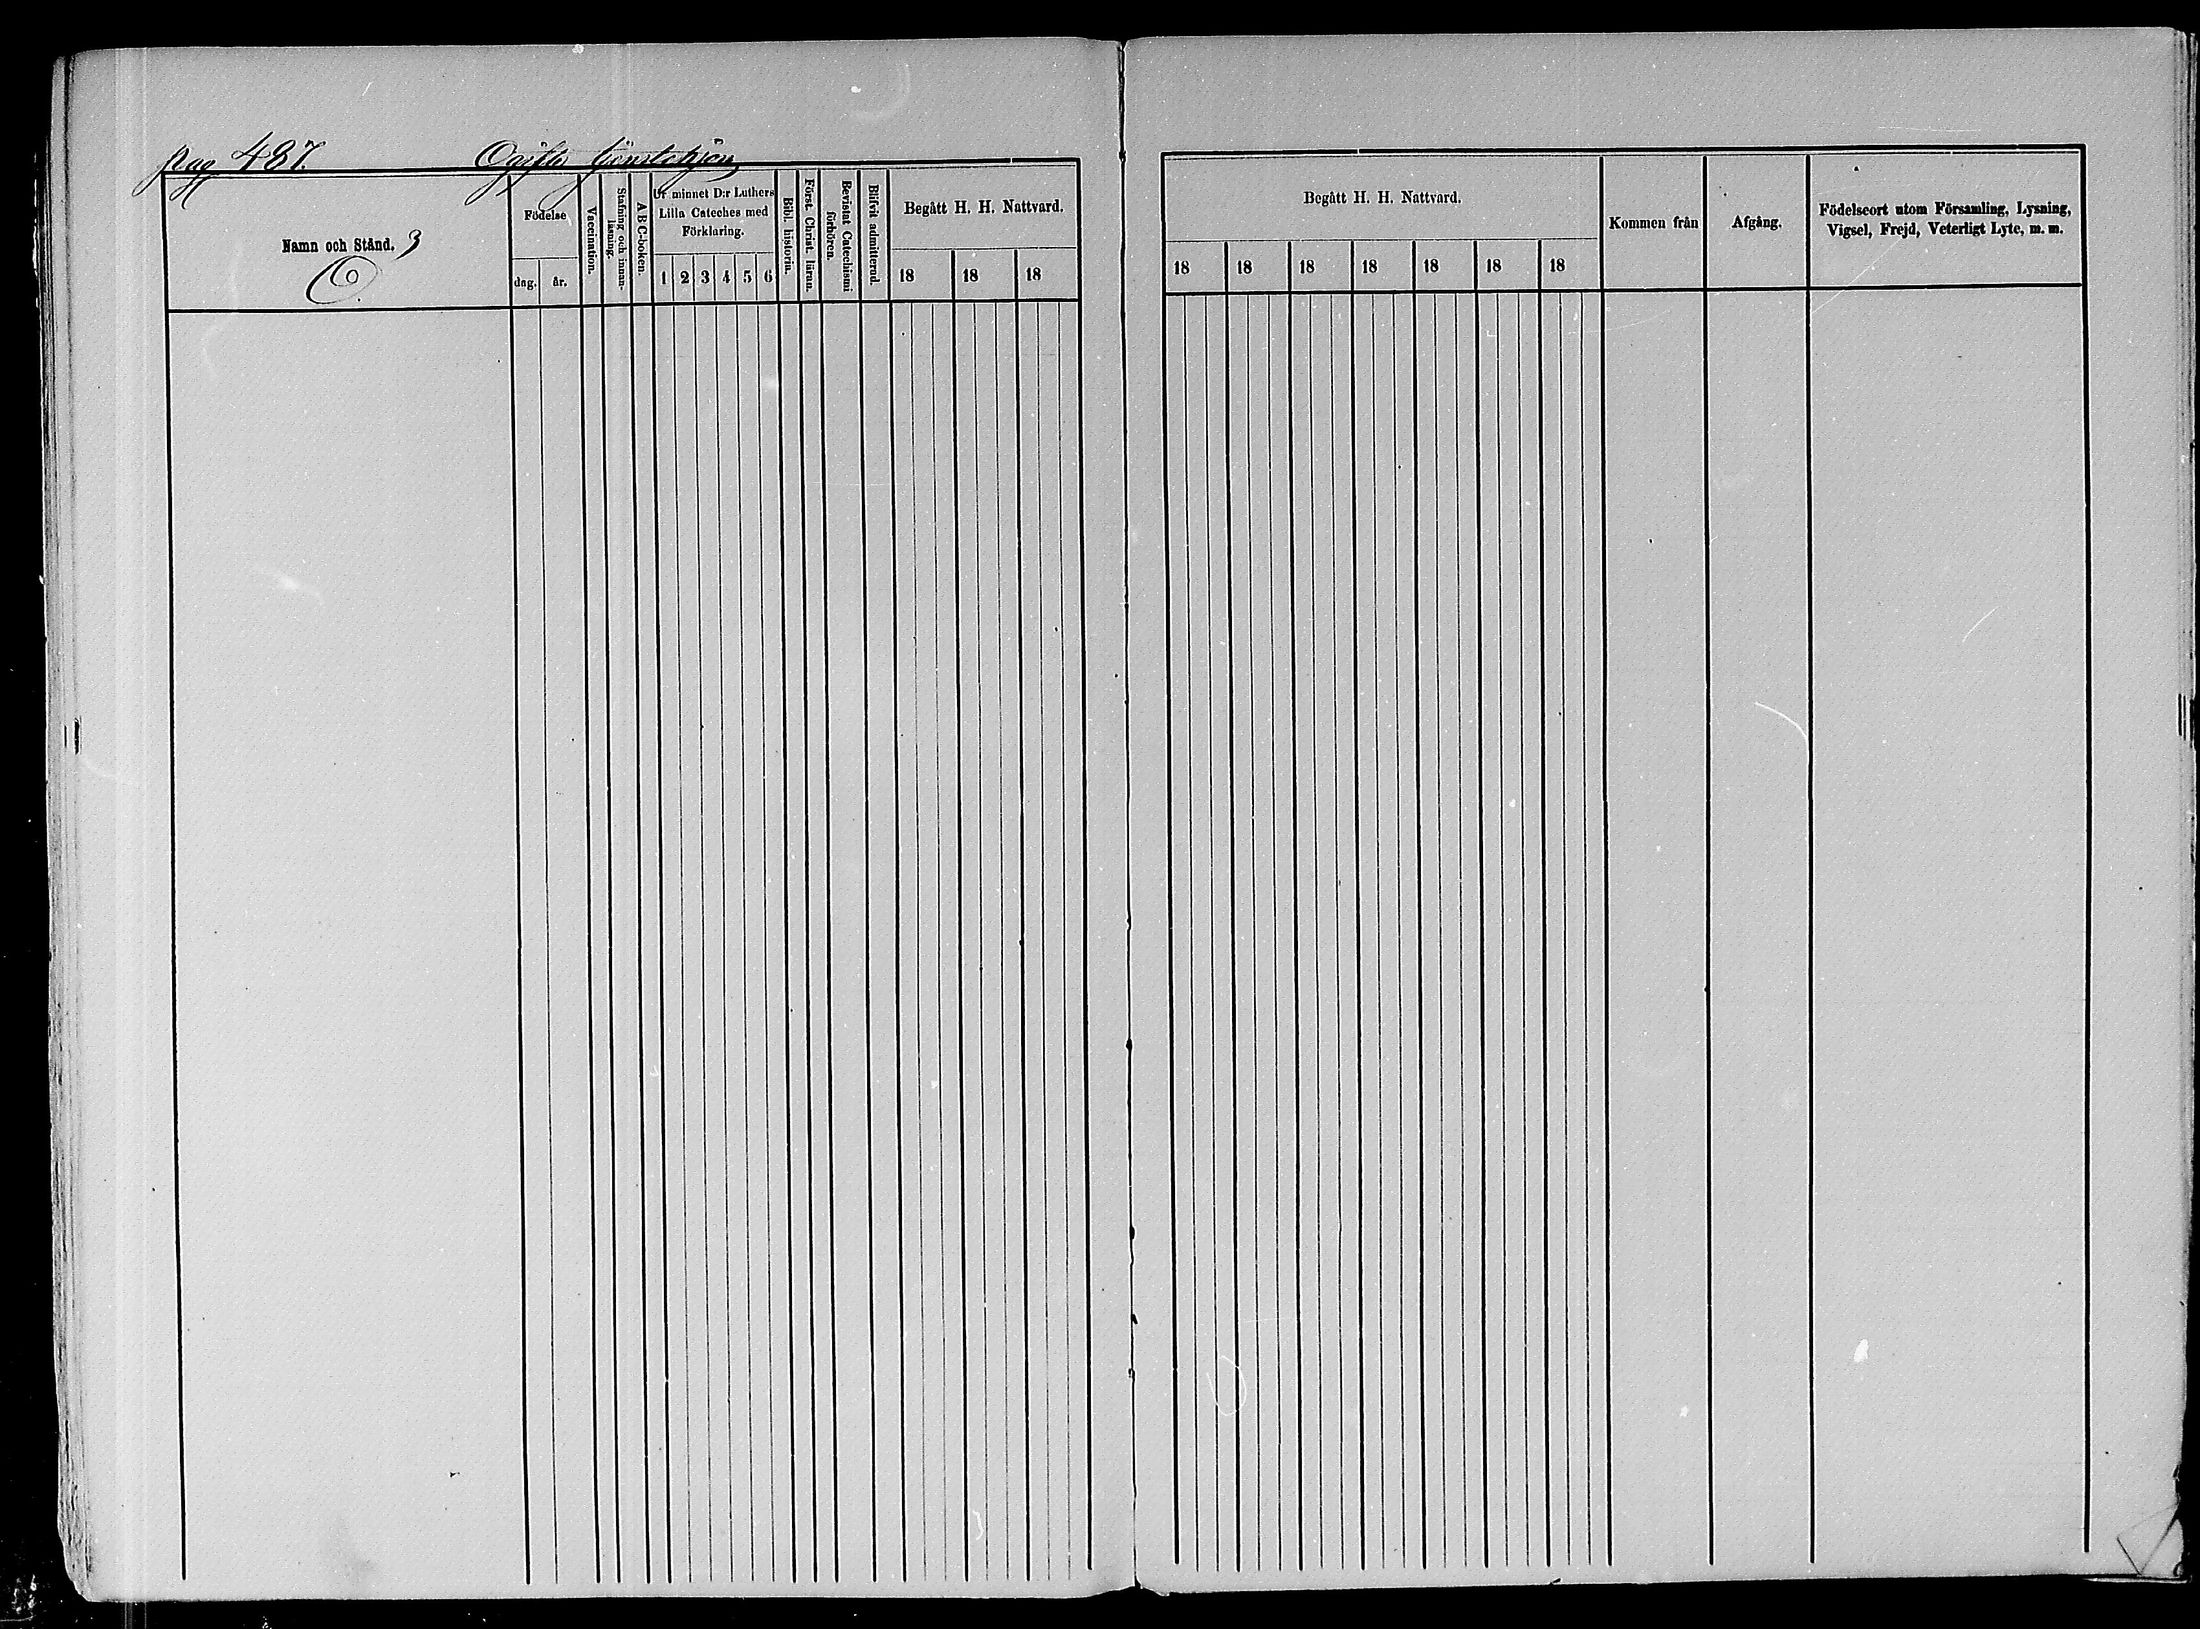 pag 487. Ogifta tjenstehjon
Namn och Stånd. 3
O.
Födelse
dag. år.
Vaccination.
Stafning och innan-
läsning.
A B C-boken.
Ur minnet D:r Luthers
Lilla Cateches med
Förklaring.
1 2 3 4 5 6
Bibl. historia.
Först. Christ. läran.
Bevistat Catechismi
förhören.
Blifvit admitterad.
Begått H. H. Nattvard.
18 18 18
Begått H. H. Nattvard.
18 18 18 18 18 18 18
Kommen från
Afgång.
Födelseort utom Församling, Lysning,
Vigsel, Frejd, Veterligt Lyte, m. m.